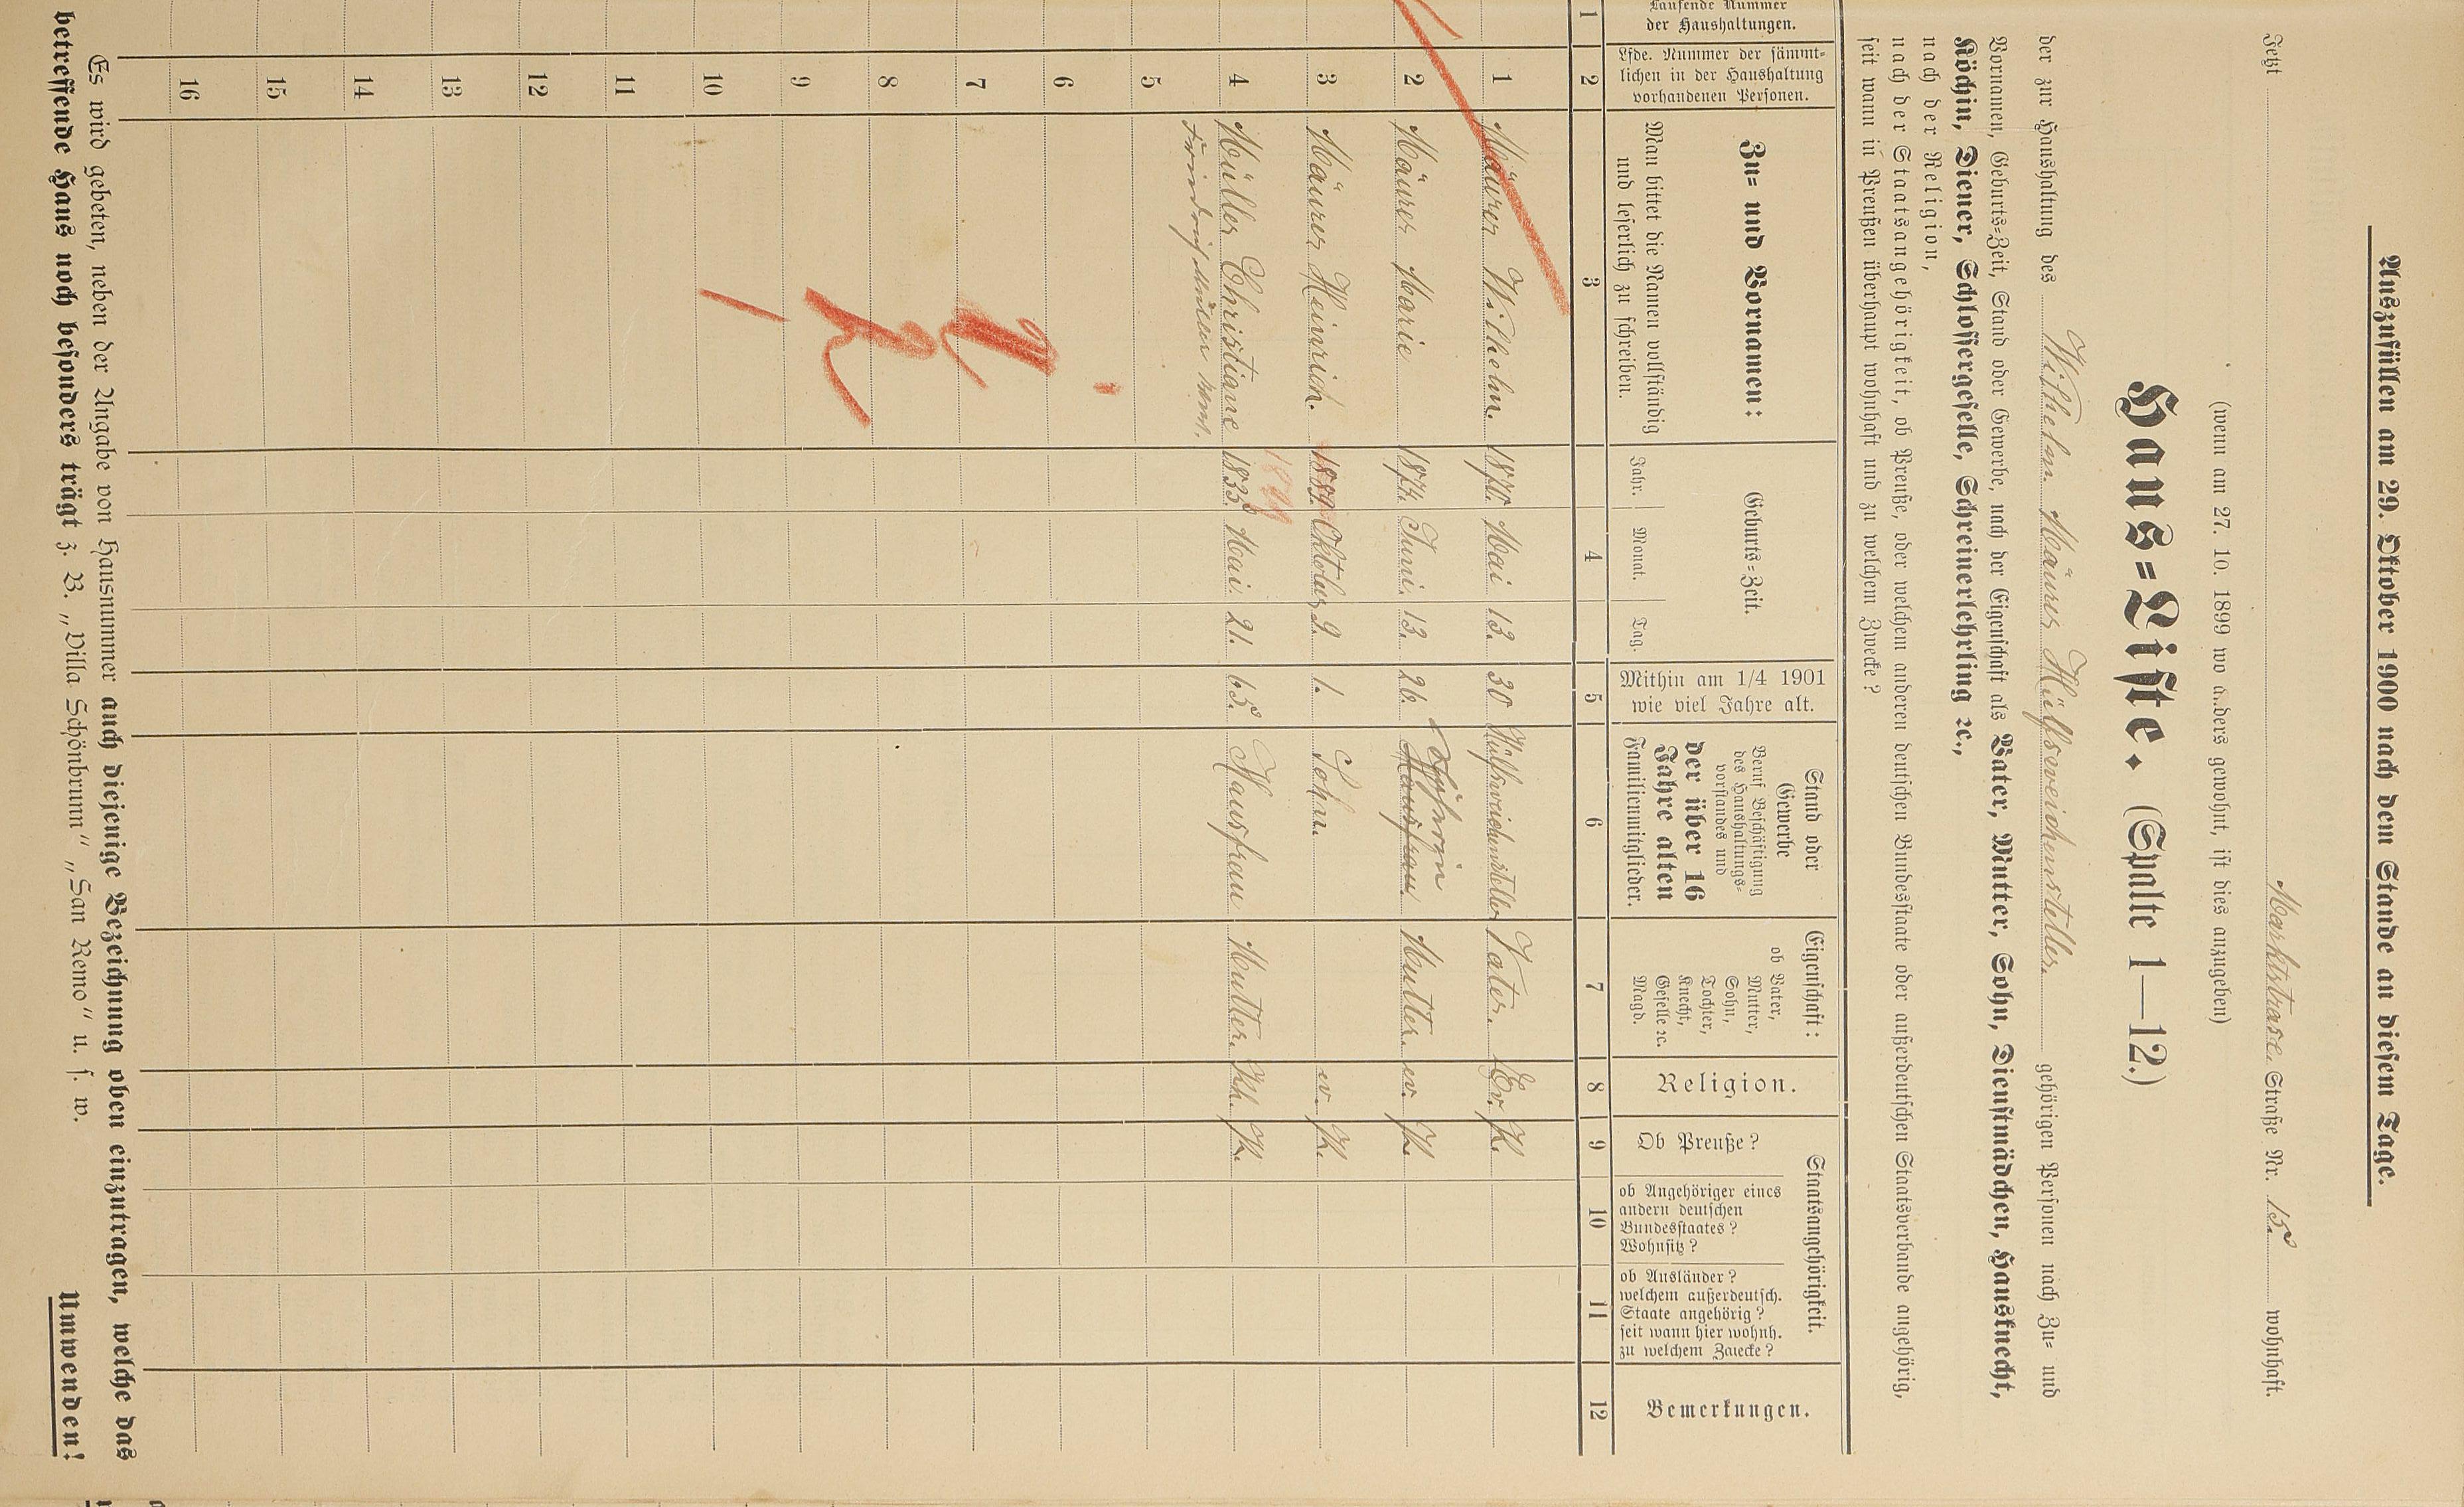 Auszufüllen am 29. Oktober 1900 nach dem Stande an diesem Tage.
Jetzt Marktstrase. Straße Nr. 15. wohnhaft.
(wenn am 27. 10. 1899 wo a..ders gewohnt, ist dies anzugeben)
Haus=Liste. (Spalte 1—12.)
der zur Haushaltung des Wilhelm Mäurer Hülfsweichensteller. gehörigen Personen nach Zu= und
Vornamen, Geburts=Zeit, Stand oder Gewerbe, nach der Eigenschaft als Vater, Mutter, Sohn, Dienstmädchen, Hausknecht,
Köchin, Diener, Schlossergeselle, Schreinerlehrling 2c.,
nach der Religion,
nach der Staatsangehörigkeit, ob Preuße, oder welchem anderen deutschen Bundesstaate oder außerdeutschen Staatsverbande angehörig,
seit wann in Preußen überhaupt wohnhaft und zu welchem Zwecke?
Laufende Nummer
der Haushaltungen.
Lfde. Nummer der sämmt=
lichen in der Haushaltung
vorhandenen Personen.
Zu= und Vornamen:
Man bittet die Namen vollständig
und leserlich zu schreiben.
Geburts=Zeit.
Jahr. Monat. Tag.
Mithin am 1/4 1901
wie viel Jahre alt.
Stand oder
Gewerbe
Beruf Beschäftigung
des Haushaltungs=
vorstandes und
der über 16
Jahre alten
Familienmitglieder.
Eigenschaft:
ob Vater,
Mutter,
Sohn,
Tochter,
Knecht,
Geselle 2c.
Magd.
Religion.
Staatsangehörigkeit.
Ob Preuße?
ob Angehöriger eines
andern deutschen
Bundesstaates?
Wohnsitz?
ob Ausländer?
welchem außerdeutsch.
Staate angehörig?
seit wann hier wohnh.
zu welchem Zwecke?
Bemerkungen.
1 2 3 4 5 6 7 8 9 10 11 12
1 Mäurer Wilhelm. 1870. Mai 13. 30 Hülfsweichensteller Vater. Ev.
2 Mäurer Marie 1874. Juni. 13. 26. Hausfrau Mutter. ev.
3 Mäurer Heinrich. 1899. Oktober 9. 1. Sohn. ev.
1899
4 Müller Christiane 1835. Mai. 21. 65. Hausfrau Mutter.
5
6
7
8
9
10
11
12
13
14
15
16
Es wird gebeten, neben der Angabe von Hausnummer auch diejenige Bezeichnung oben einzutragen, welche das
betreffende Haus noch besonders trägt z. B. „Villa Schönbrunn“ „San Remo“ u. s. w.
Umwenden!